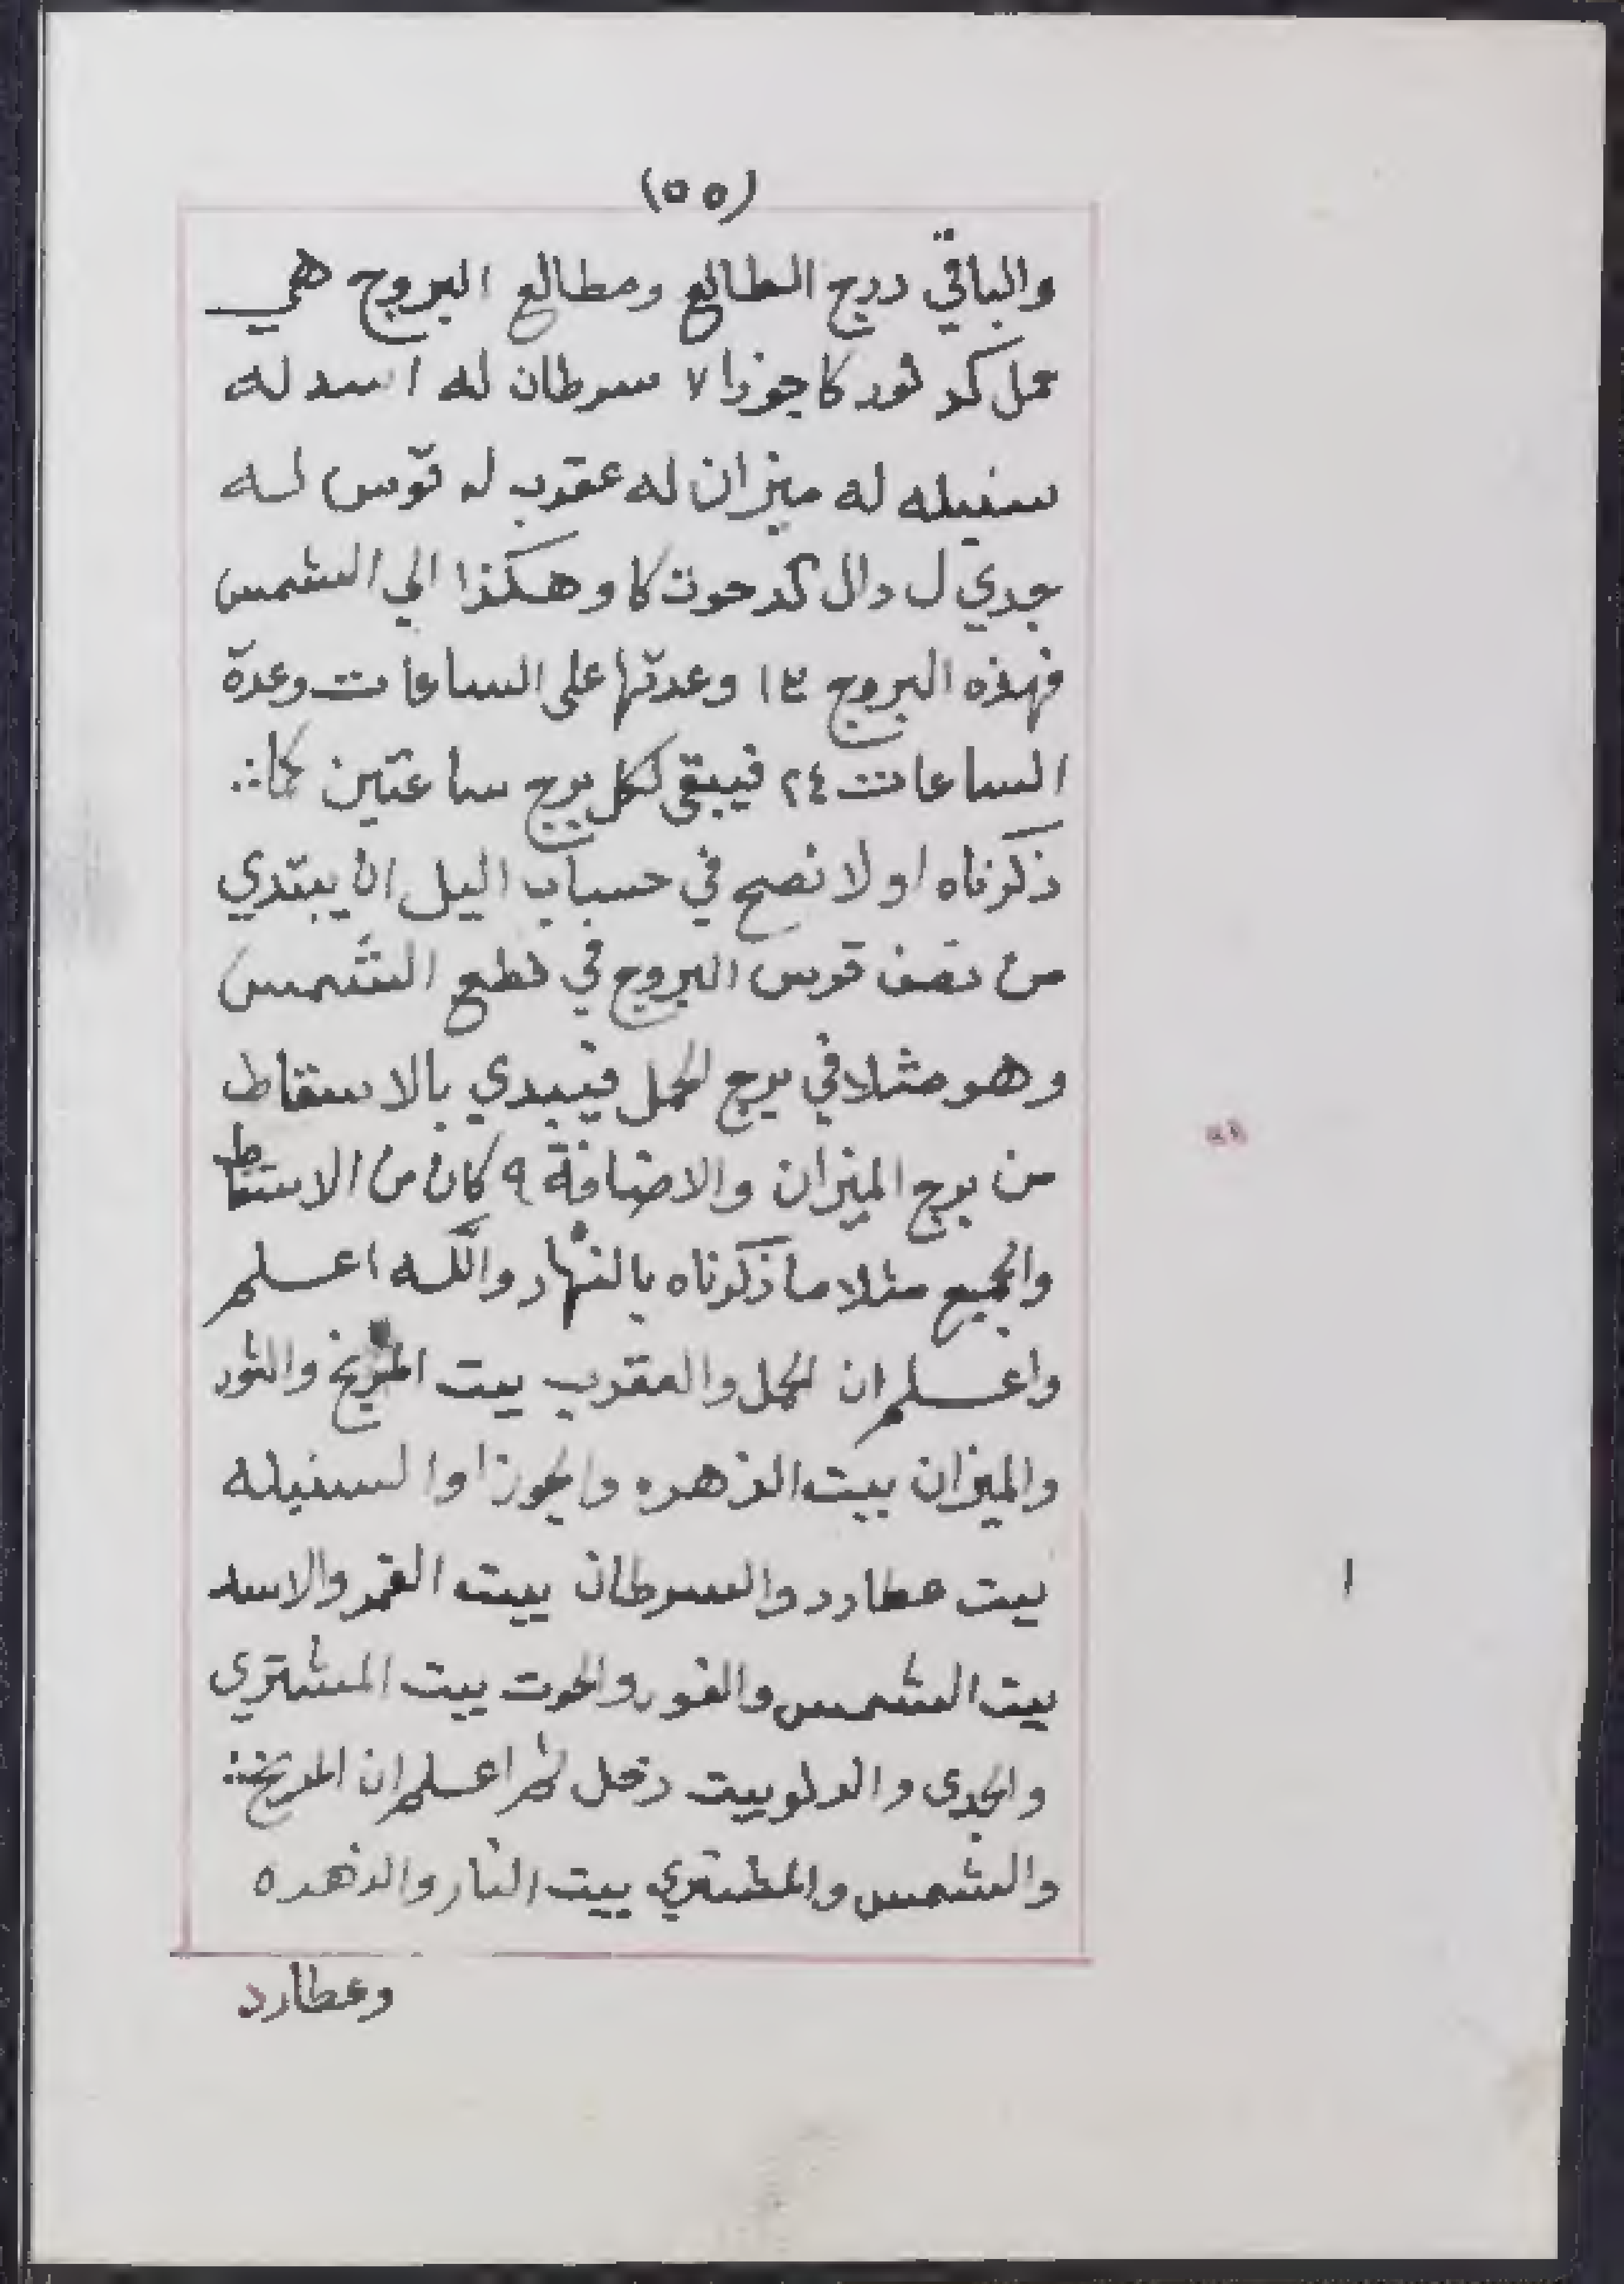 (٥٥)
والباقي درج الطالع ومطالع البروج هي
حمل كد ثور كا جوزا ٧ سرطان له اسد له
سنبله له ميزان له عقرب له قوس له
جدي ل دال كد حوت كا وهكذا الي الشمس
فهذه البروج ١٣ وعدتها على الساعات وعدة
الساعات ٢٤ فيبقى لكل برج ساعتين كما
ذكرناه اولا نصح في حساب اليل ان يبتدي
من نصف قوس البروج في قطع الشمس
وهو مثلا في برج الحمل فيبدي بالاسقاط
من برج الميزان والاضافة ٩ كان من الاسقاط
والجميع مثلا ما ذكرناه بالنهار والله اعلم
واعلم ان الحمل والعقرب بيت المريخ والثور
والميزان بيت الزهره والجوزا والسنبله
بيت عطارد والسرطان بيت القمر والاسد
بيت الشمس والقور والحوت بيت المشتري
والجدى والدلو بيت زحل ثم اعلم ان المريخ
والشمس والمشتري بيت النار والزهره
وعطارد